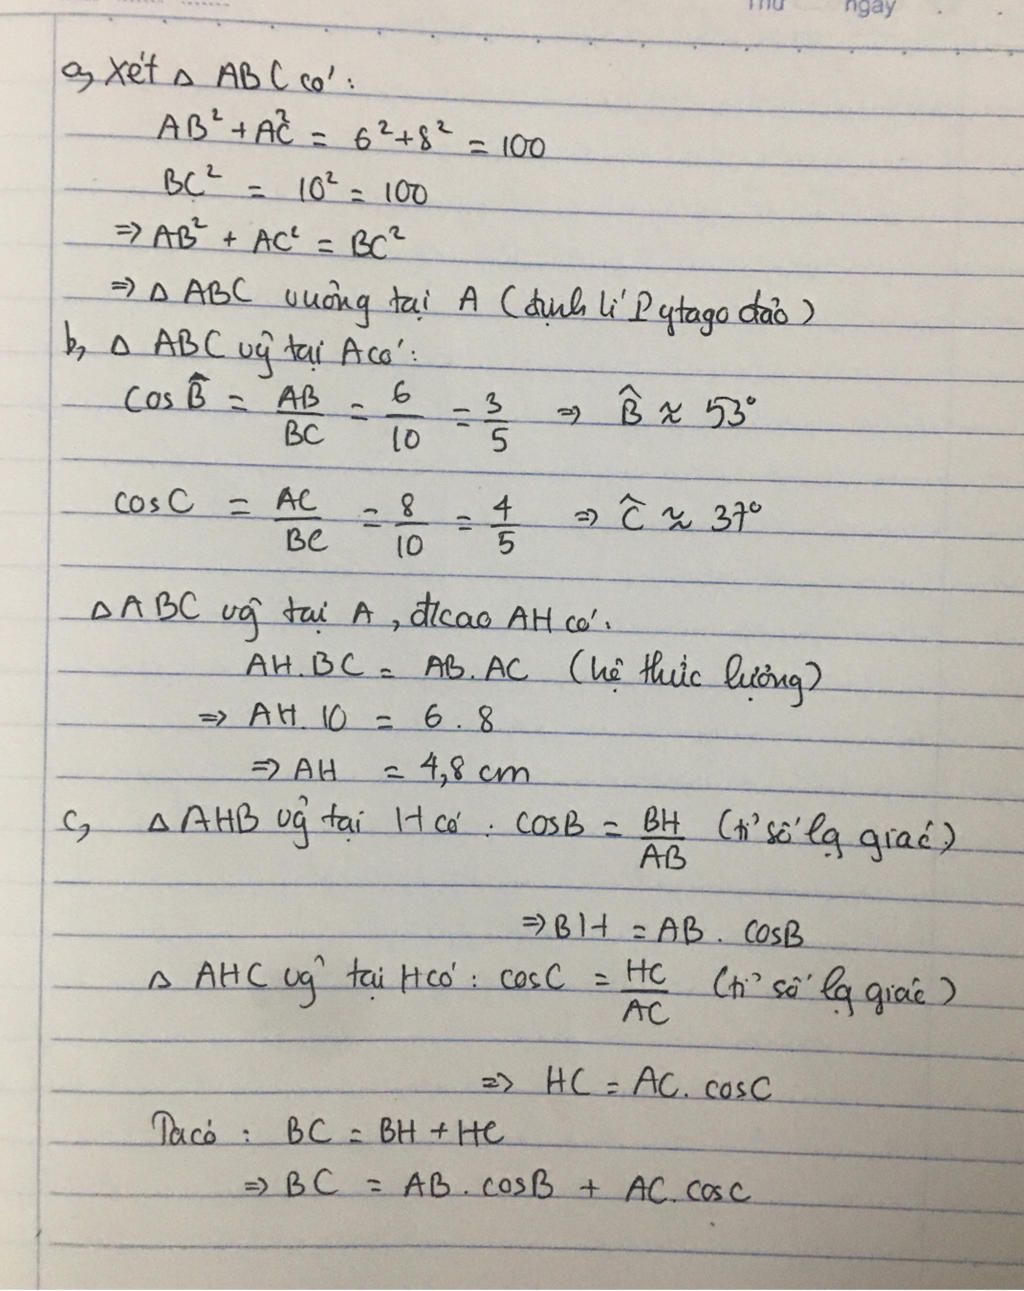 Thứ ngày
a, Xét Δ ABC có:
AB² + AC² = 6² + 8² = 100
BC² = 10² = 100
⇒ AB² + AC² = BC²
⇒ Δ ABC vuông tại A (định lí Pytago đảo)
b, Δ ABC vĝ tại A có:
Cos B̂ = AB/BC = 6/10 = 3/5 ⇒ B̂ ≈ 53°
cosC = AC/BC = 8/10 = 4/5 ⇒ Ĉ ≈ 37°
Δ ABC vĝ tại A, đ/cao AH có:
AH.BC = AB.AC (hệ thức lượng)
⇒ AH.10 = 6.8
⇒ AH = 4,8 cm
c, Δ AHB vĝ tại H có: cosB = BH/AB (tỉ số lg giác)
⇒ BH = AB. cosB
Δ AHC vĝ tại H có: cosC = HC/AC (tỉ số lg giác)
⇒ HC = AC. cosC
Ta có: BC = BH + HC
⇒ BC = AB.cosB + AC.cosC